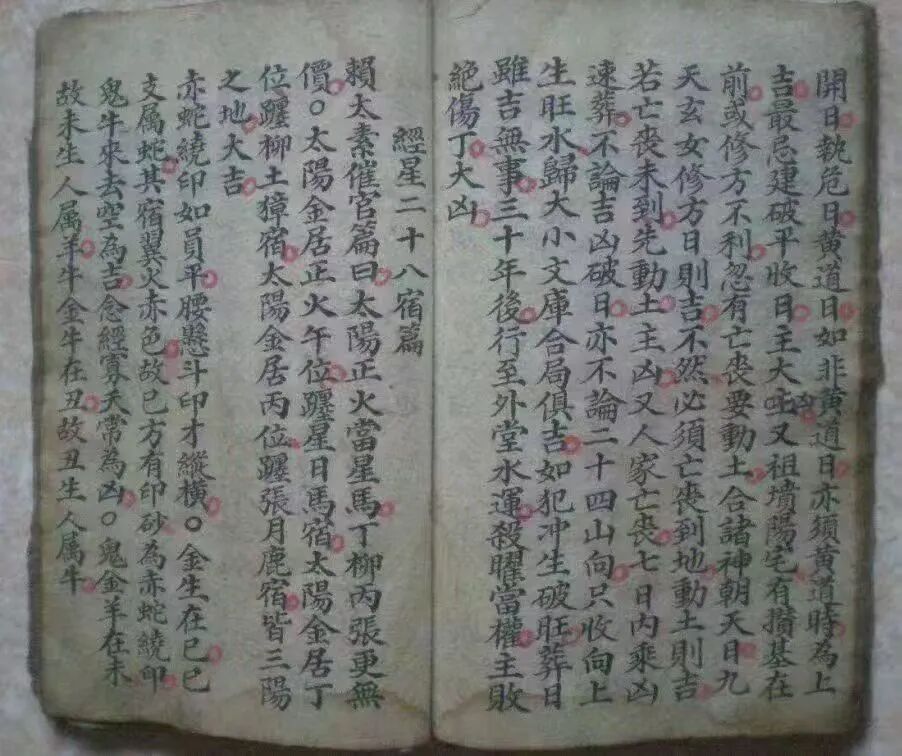 開日執危日黄道日如非黄道日亦須黄道時為上
吉最忌建破平收日主大凶又祖墳陽宅有攢基在
前或修方不利忽有亡喪要動土合諸神朝天日九
天玄女修方日則吉不然必須亡喪到地動土則吉
若亡喪未到先動土主凶又人家亡喪七日内乘凶
速葬不論吉凶破日亦不論二十四山向只收向上
生旺水歸大小文庫合局俱吉如犯冲生破旺葬日
雖吉無事三十年後行至外堂水運殺曜當權主敗
絶傷丁大凶
經星二十八宿篇
賴太素催官篇曰太陽正火當星馬丁柳丙張更無
價○太陽金居正火午位躔星日馬宿太陽金居丁
位躔柳土獐宿太陽金居丙位躔張月鹿宿皆三陽
之地大吉
赤蛇繞印如員平腰懸斗印才縱横○金生在巳巳
支属蛇其宿翼火赤色故巳方有印砂為赤蛇繞印
鬼牛來去空為吉念經寡天常為凶○鬼金羊在未
故未生人属羊牛金牛在丑故丑生人属牛